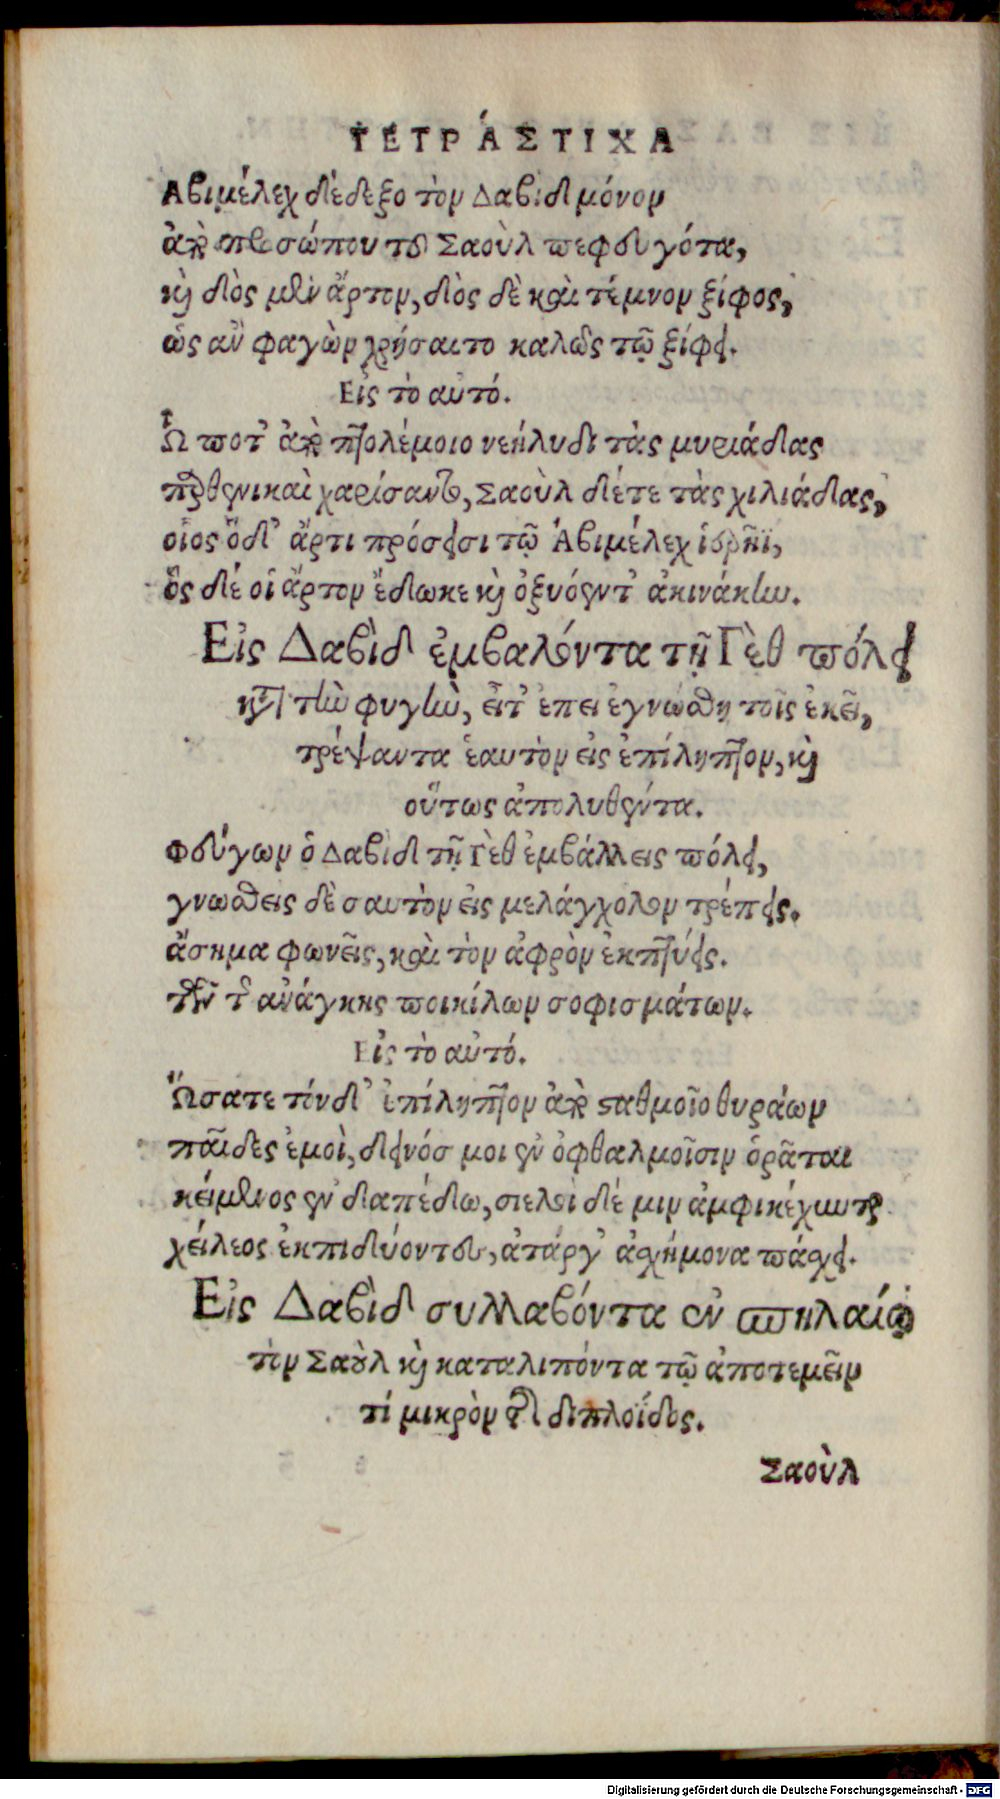 ΤΕΤΡΆΣΤΙΧΑ
Αβιμέλεχ δέδεξο τὸν Δαβὶδ μόνον
ἀπὸ προσώπου τοῦ Σαοὺλ πεφευγότα,
καὶ δὸς μὲν ἄρτον, δὸς δὲ καὶ τέμνον ξίφος,
ὡς ἂν φαγὼν χρήσαιτο καλῶς τῷ ξίφει.
Εἰς τὸ αὐτό.
Ὧ ποτ' ἀπὸ πτολέμοιο νεήλυδι τὰς μυριάδας
παρθενικαὶ χαρίσαντο, Σαοὺλ δέ τε τὰς χιλιάδας,
οἶος ὅδ' ἄρτι πρόσεισι τῷ Ἀβιμέλεχ ἱερῆϊ,
ὅς δέ οἱ ἄρτον ἔδωκε καὶ ὀξυόεντ' ἀκινάκην.
Εἰς Δαβὶδ ἐμβαλόντα τῇ Γὲθ πόλει
κατὰ τὴν φυγὴν, εἶτ' ἐπει ἐγνώσθη τοῖς ἐκεῖ,
τρέψαντα ἑαυτὸν εἰς ἐπίληπτον, καὶ
οὕτως ἀπολυθέντα.
Φεύγων ὁ Δαβὶδ τῇ Γὲθ ἐμβάλλεις πόλει,
γνωσθεις δὲ σαυτὸν εἰς μελάγχολον τρέπεις.
ἄσημα φωνεῖς, καὶ τὸν ἀφρὸν ἐκπτύεις.
τῶν τῆς ἀνάγκης ποικίλων σοφισμάτων.
Εἰς τὸ αὐτό.
Ὤσατε τόνδ' ἐπίληπτον ἀπὸ σταθμοῖο θυράων
παῖδες ἐμοὶ, δεινόσ μοι ἐν ὀφθαλμοῖσιν ὁρᾶται
κείμενος ἐν δαπέδω, σιελοὶ δέ μιν ἀμφικέχυνται
χείλεος ἐκπιδύοντες, ἀτάργ' ἀσχήμονα πάσχει.
Εἰς Δαβὶδ συλλαβόντα ἐν σπηλαίῳ
τὸν Σαοὺλ καὶ καταλιπόντα τῷ ἀποτεμεῖν
τί μικρὸν τῆς διπλοΐδος.
Σαοὺλ
Digitalisierung gefördert durch die Deutsche Forschungsgemeinschaft - DFG